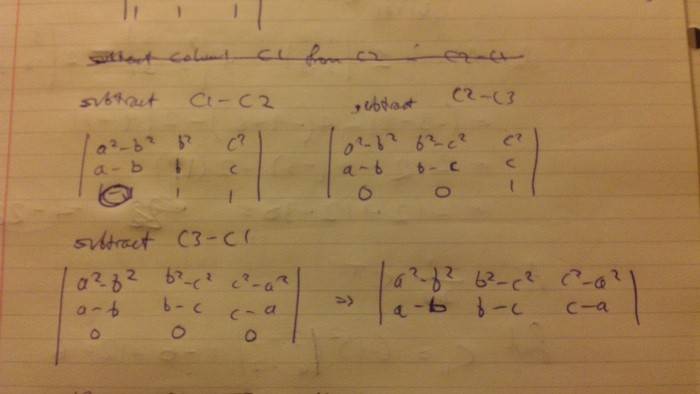 | 1 1 1 |
subtract column C1 from C2 = C2-C1
subtract C1-C2
subtract C2-C3
| a²-b² b² c² |
| a-b b c |
| 1 1 |
| a²-b² b²-c² c² |
| a-b b-c c |
| 0 0 1 |
subtract C3-C1
| a²-b² b²-c² c²-a² |
| a-b b-c c-a |
| 0 0 0 |
=> | a²-b² b²-c² c²-a² |
| a-b b-c c-a |